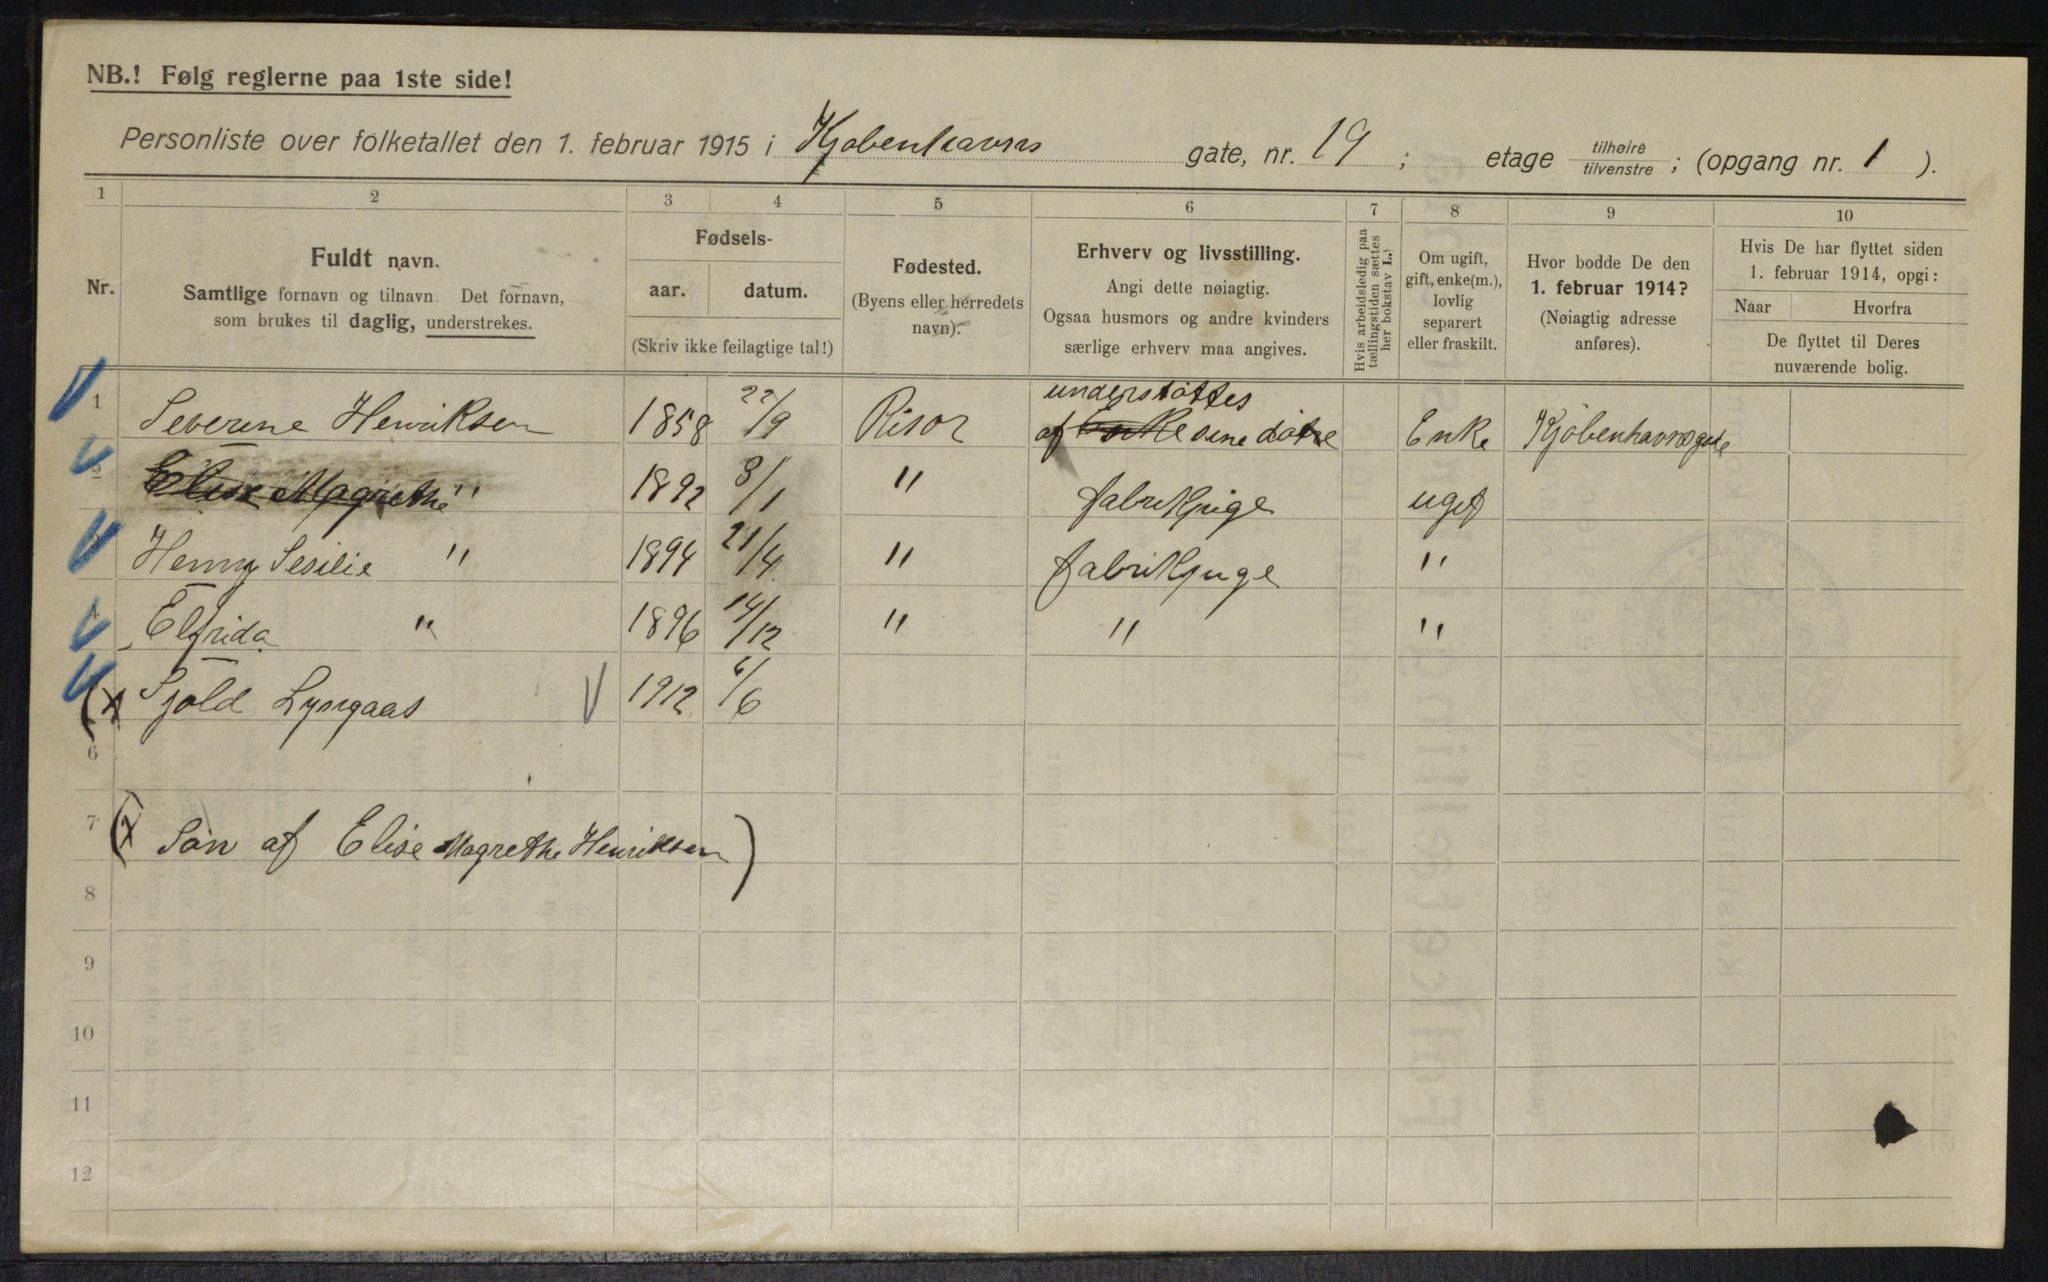 NB.! Følg reglerne paa 1ste side!
Personliste over folketallet den 1. februar 1915 i Kjøbenhavns gate, nr. 19 ; etage tilhøire / tilvenstre ; (opgang nr. 1 ).
1 2 3 4 5 6 7 8 9 10
Nr.
Fuldt navn.
Samtlige fornavn og tilnavn. Det fornavn,
som brukes til daglig, understrekes.
Fødsels-
aar. datum.
(Skriv ikke feilagtige tal!)
Fødested.
(Byens eller herredets
navn).
Erhverv og livsstilling.
Angi dette nøiagtig.
Ogsaa husmors og andre kvinders
særlige erhverv maa angives.
Hvis arbeidsledig paa
tællingstiden sættes
her bokstav L.!
Om ugift,
gift, enke(m.),
lovlig
separert
eller fraskilt.
Hvor bodde De den
1. februar 1914?
(Nøiagtig adresse
anføres).
Hvis De har flyttet siden
1. februar 1914, opgi:
Naar Hvorfra
De flyttet til Deres
nuværende bolig.
understøttes
1 Severine Henriksen 1858 22/9 Risør af Enke sine døtre Enke Kjøbenhavnsgate
2 Elise Magrethe " 1892 8/1 " fabrikpige ugif
3 Henny Sesilie " 1894 21/4 " fabrikpige "
4 Elfrida " 1896 14/12 " " "
(x Sjold Lysgaas 1912 6/6
6
7 (x Søn af Elise Magrethe Henriksen)
8
9
10
11
12